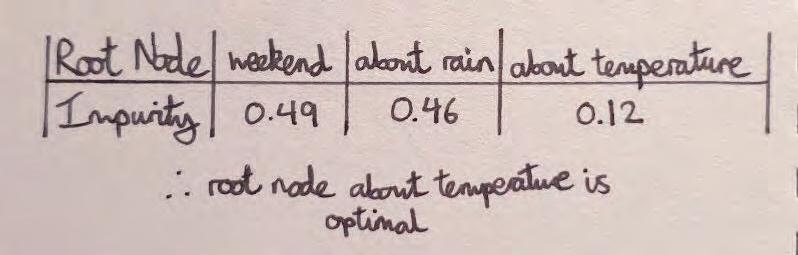 Root Node weekend about rain about temperature
Impurity 0.49 0.46 0.12
∴ root node about temperature is
optimal